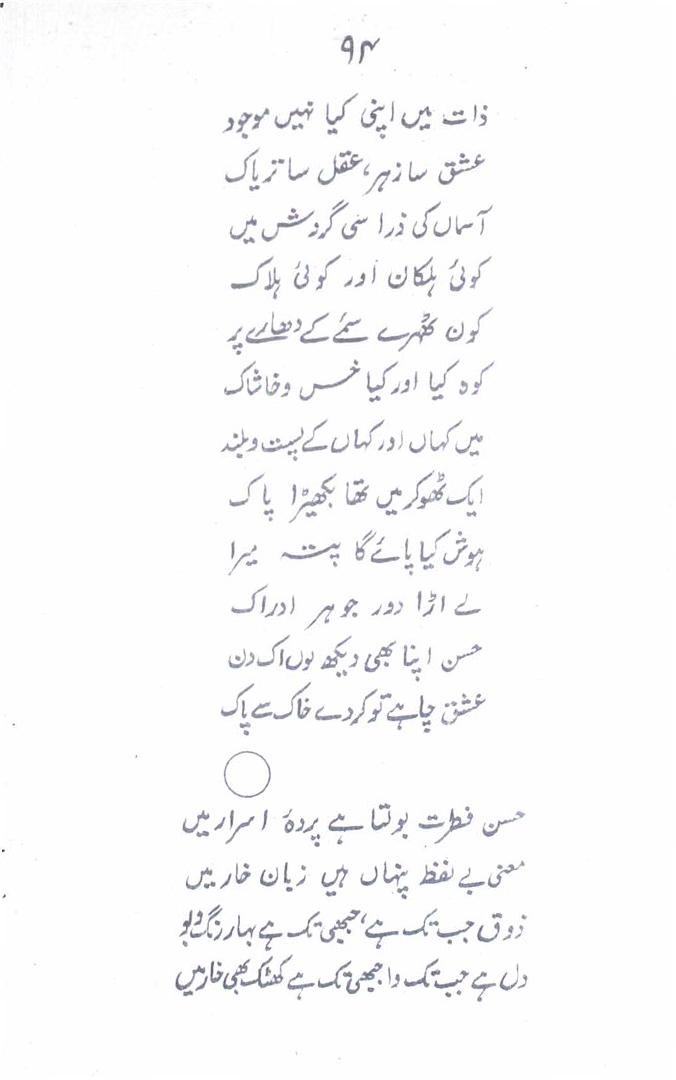 ۹۴
ذات میں اپنی کیا نہیں موجود
عشق سا زہر، عقل سا تریاک
آسماں کی ذرا سی گردش میں
کوئی ہلکان اور کوئی ہلاک
کون ٹھہرے سمے کے دھارے پر
کوہ کیا اور کیا خس و خاشاک
میں کہاں اور کہاں کے پست و بلند
ایک ٹھوکر میں تھا بکھیڑا پاک
ہوش کیا پائے گا پتہ میرا
لے اڑا دور جوہر ادراک
حسن اپنا بھی دیکھ لوں اک دن
عشق چاہے تو کر دے خاک سے پاک
حسن فطرت بولتا ہے پردۂ اسرار میں
معنی بے لفظ پنہاں ہیں زبان خار میں
ذوق جب تک ہے، جبھی تک ہے بہار رنگ و بو
دل ہے جب تک وا جبھی تک ہے کھٹک بھی خار میں